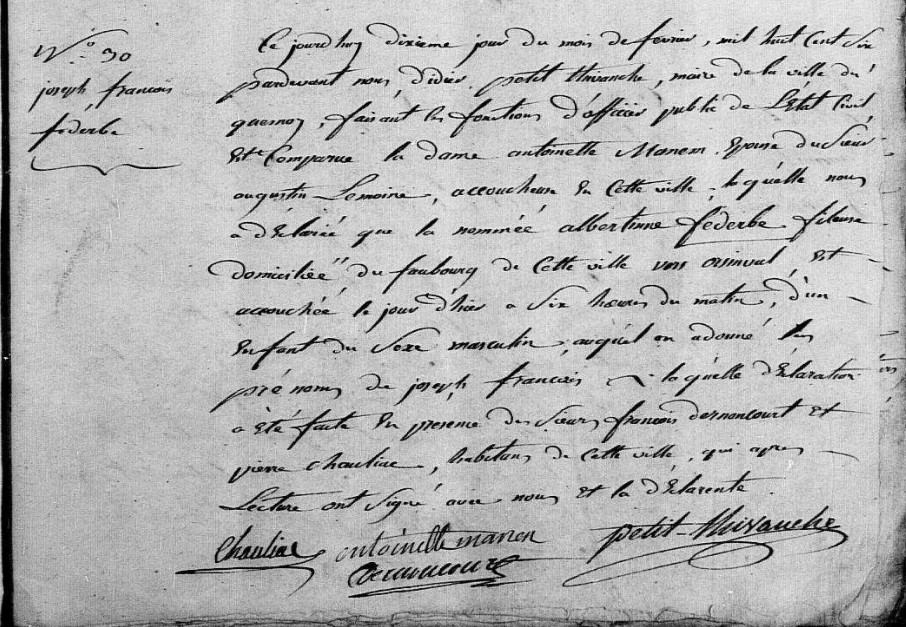 N.º 30
joseph francois
féderbe
Ce jourd'huy dixieme jour du mois de fevrier, mil huit Cent Six
pardevant nous didier petit thivanche, maire de la ville du
quesnoy, faisant les fonctions d'officier public de L'Etat Civil
Est Comparue la dame antoinette Manem Epouse du Sieur
augustin Lemoine, accoucheuse En Cette ville, laquélle nous
a déclaréé que la nomméé albertinne féderbe fileuse
domiciliéé du faubourg de Cette ville vers orsinval, Est
accouchéé le jour d'hier a Six heures du matin, d'un
Enfant du Sexe masculin, auquél on adonné les
prénoms de joseph francois laquélle déclaration
a été faite En presence des Sieurs francois dernoncourt Et
pierre chauliac, habitans de Cette ville, qui apres
Lecture ont Signé avec nous Et la déclarente
Chauliac antoinette manen petit-thivanche
dernoncourt